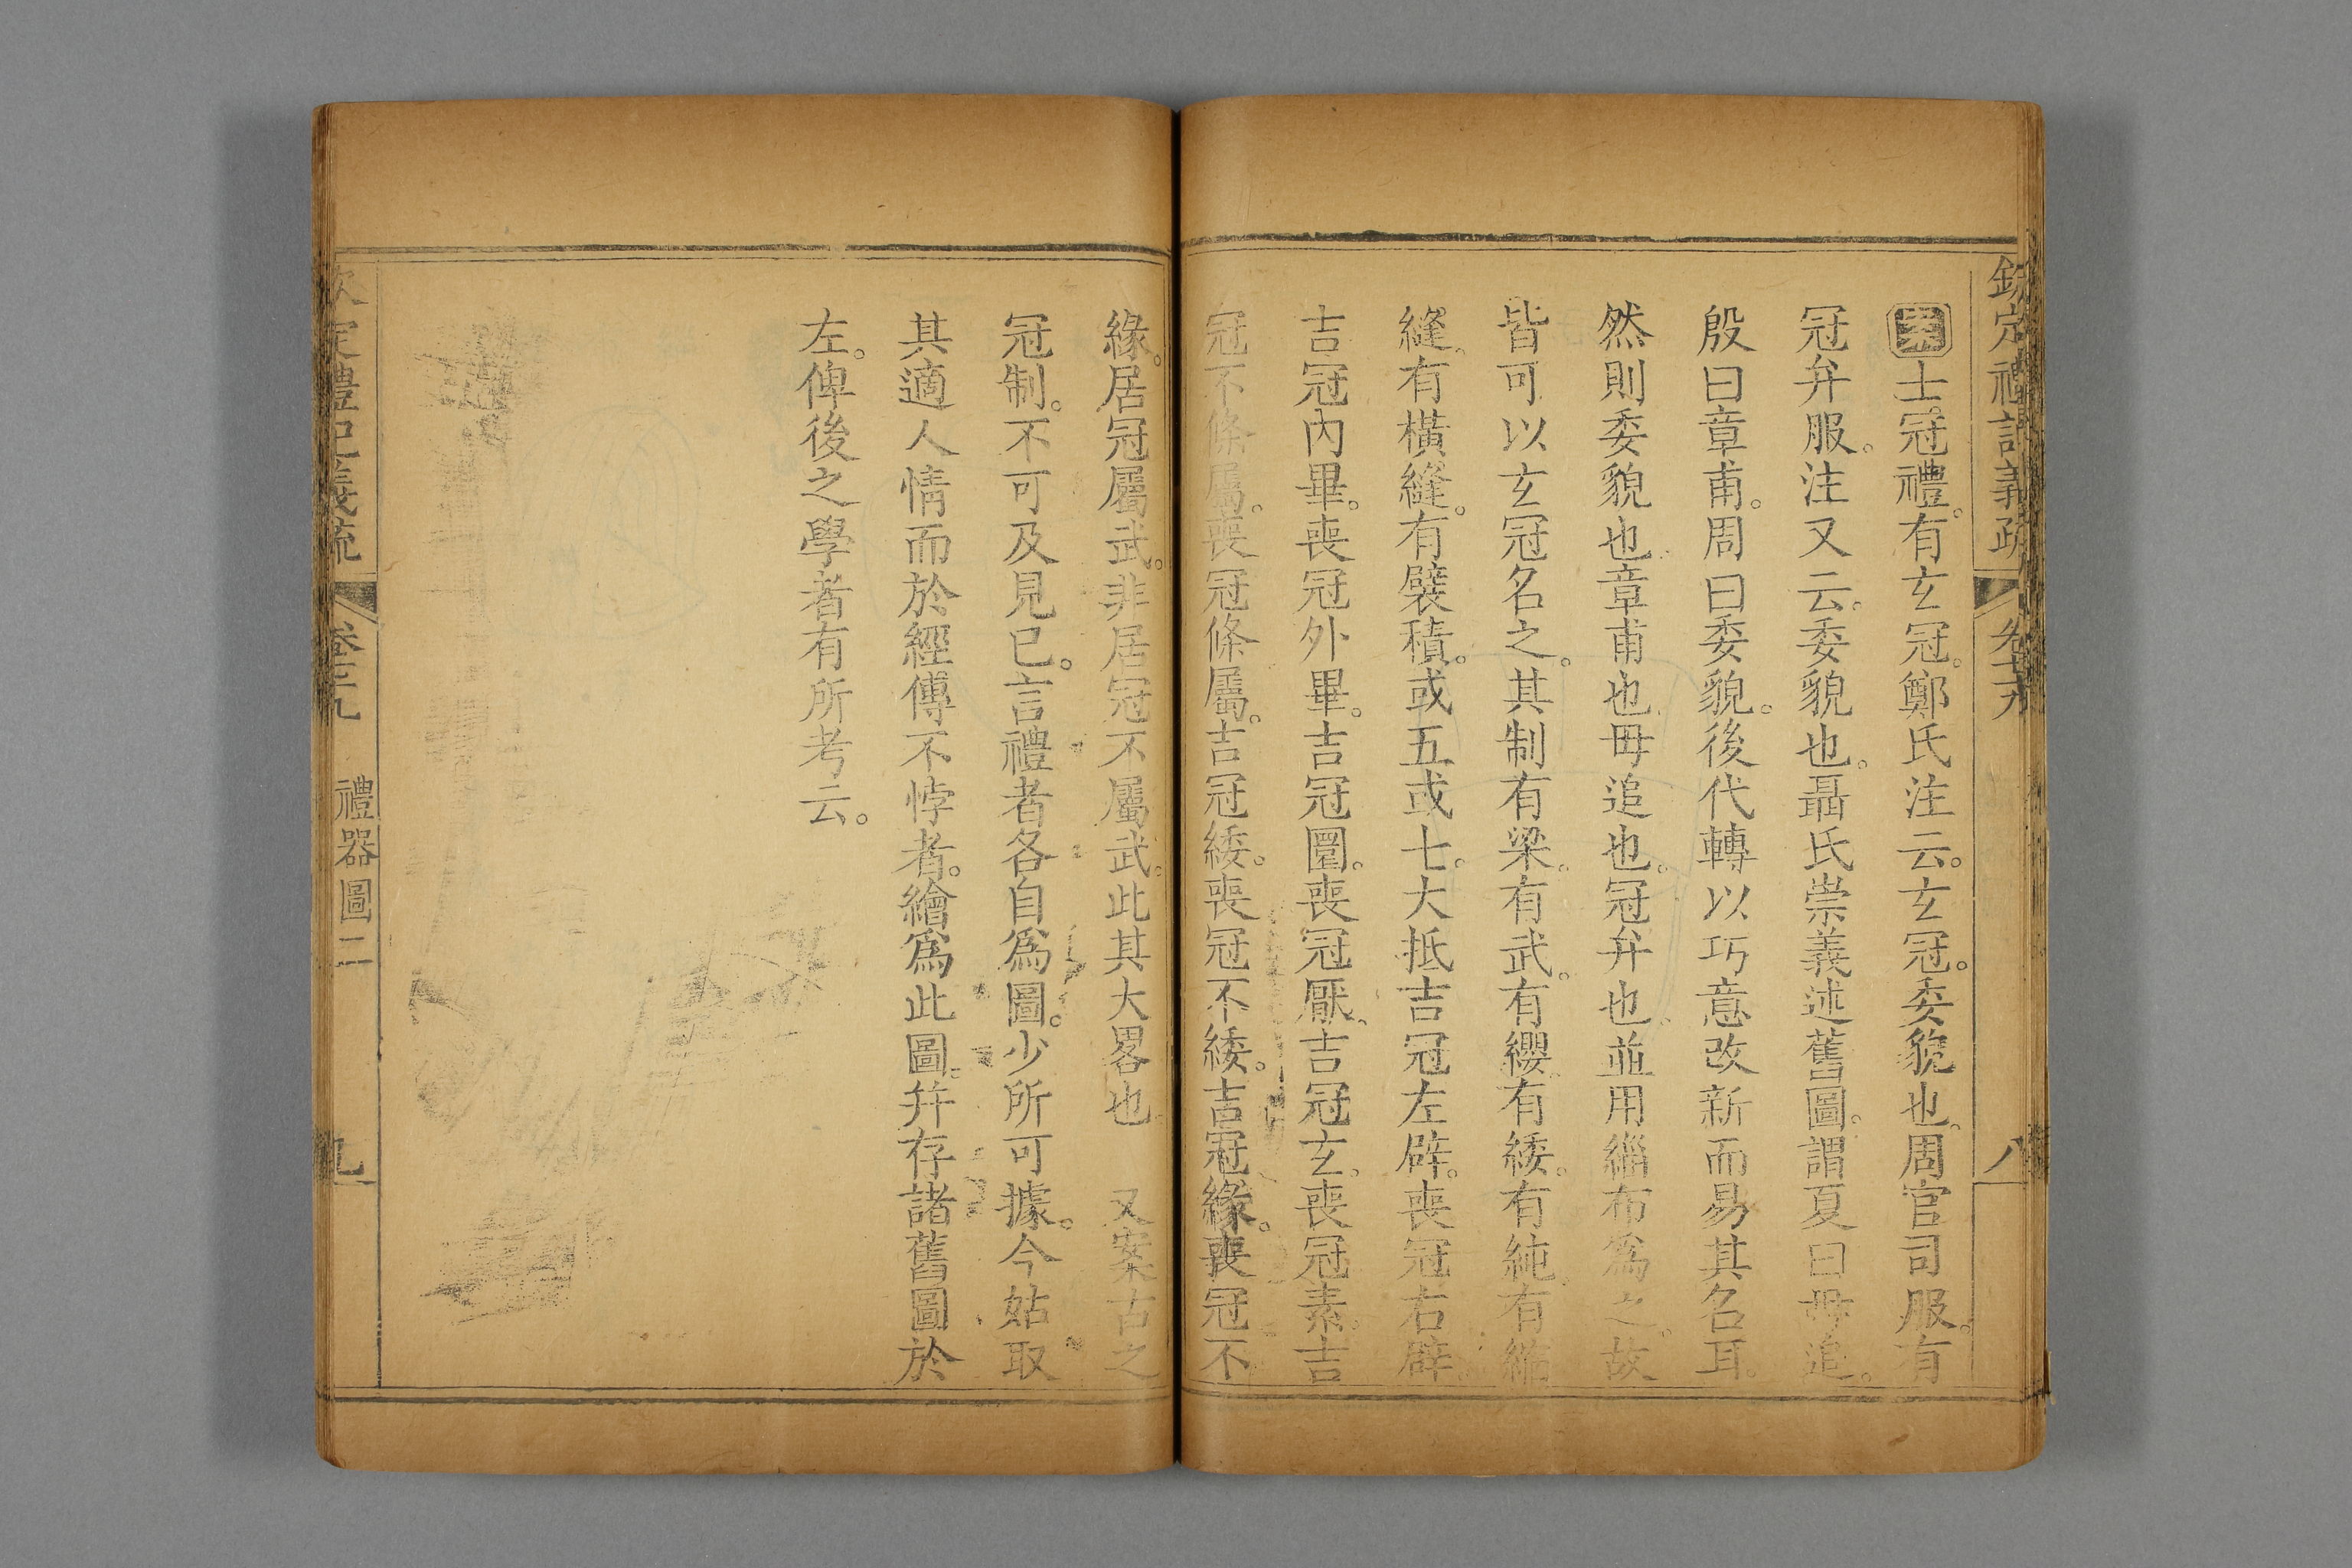 欽定禮記義疏
八
案士冠禮。有玄冠。鄭氏注云。玄冠。委貌也。周官司服。有
冠弁服。注又云。委貌也。聶氏崇義述舊圖。謂夏曰毋追。
殷曰章甫。周曰委貌。後代轉以巧意改新而易其名耳。
然則委貌也。章甫也。毋追也。冠弁也。並用緇布爲之。故
皆可以玄冠名之。其制有梁。有武。有纓。有緌。有純。有縮
縫。有橫縫。有襞積。或五或七。大抵吉冠左辟。喪冠右辟。
吉冠內畢。喪冠外畢。吉冠圜。喪冠厭。吉冠玄。喪冠素。吉
冠不條屬。喪冠條屬。吉冠緌。喪冠不緌。吉冠緣。喪冠不
緣。居冠屬武。非居冠不屬武。此其大畧也 又案古之
冠制。不可及見已。言禮者各自爲圖。少所可據。今姑取
其適人情而於經傳不悖者。繪爲此圖。幷存諸舊圖於
左。俾後之學者有所考云。
定禮記義疏
禮器圖二
九